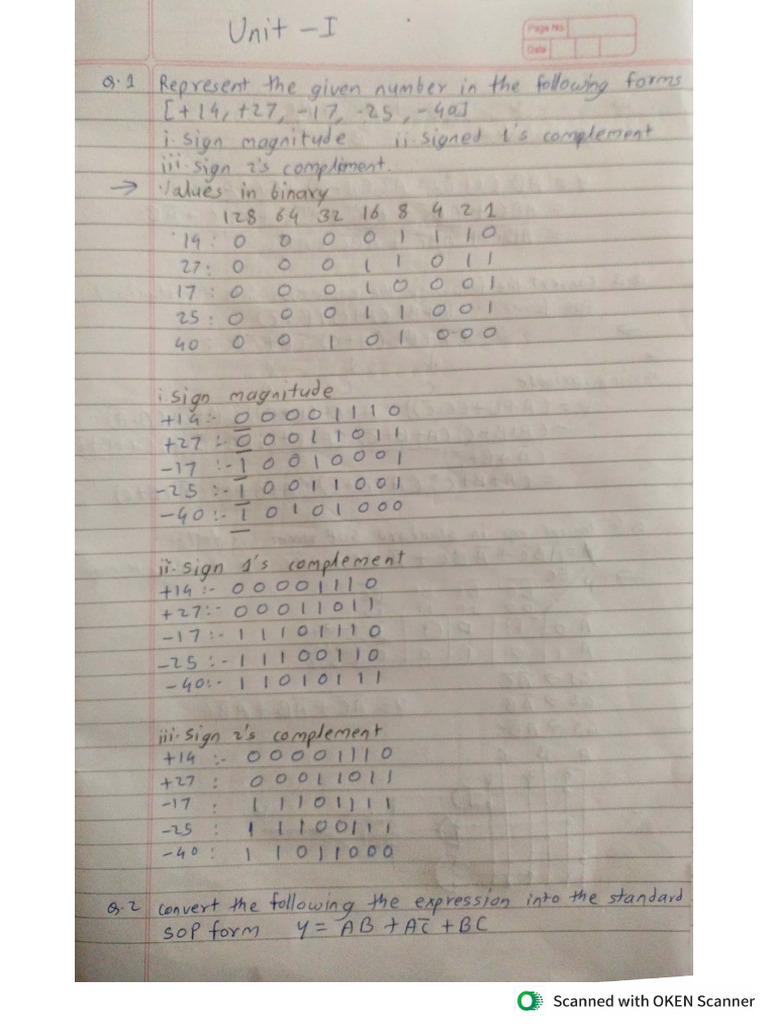 Unit - I
Page No.
Date
Q.1 Represent the given number in the following forms
[+14, +27, -17, -25, -40]
i. sign magnitude ii. signed 1's complement
iii. sign 2's compliment.
→ Values in binary
128 64 32 16 8 4 2 1
14: 0 0 0 0 1 1 1 0
27: 0 0 0 1 1 0 1 1
17: 0 0 0 1 0 0 0 1
25: 0 0 0 1 1 0 0 1
40 0 0 1 0 1 0 0 0
i sign magnitude
+14:- 0 0 0 0 1 1 1 0
+27:- 0 0 0 1 1 0 1 1
-17:- 1 0 0 1 0 0 0 1
-25:- 1 0 0 1 1 0 0 1
-40:- 1 0 1 0 1 0 0 0
ii. sign 1's complement
+14:- 0 0 0 0 1 1 1 0
+27:- 0 0 0 1 1 0 1 1
-17:- 1 1 1 0 1 1 1 0
-25:- 1 1 1 0 0 1 1 0
-40:- 1 1 0 1 0 1 1 1
iii. sign 2's complement
+14:- 0 0 0 0 1 1 1 0
+27: 0 0 0 1 1 0 1 1
-17: 1 1 1 0 1 1 1 1
-25: 1 1 1 0 0 1 1 1
-40: 1 1 0 1 1 0 0 0
Q.2 convert the following the expression into the standard
SOP form y = AB + AC̅ + BC
Scanned with OKEN Scanner